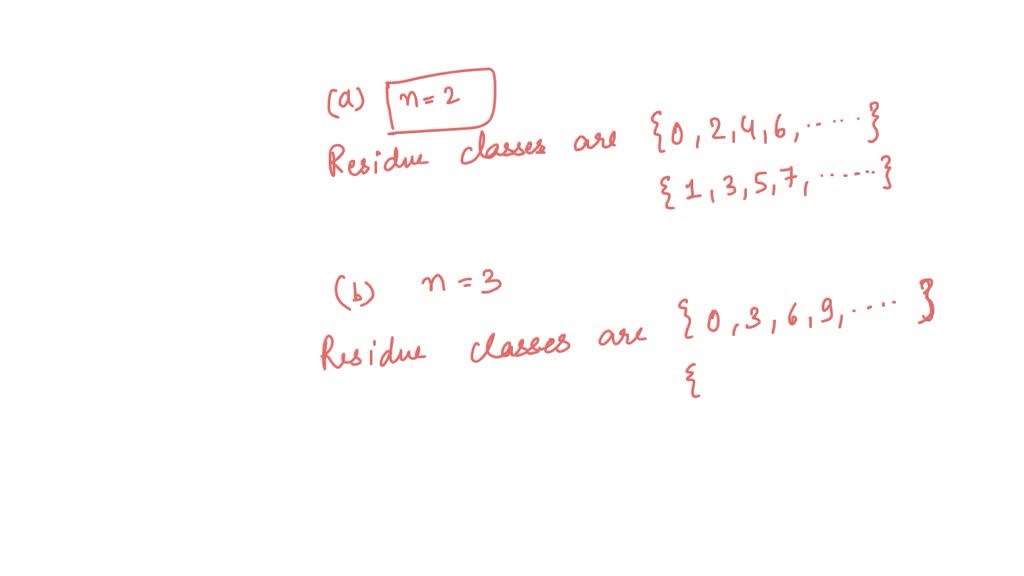 (a) n = 2
Residue classes are {0, 2, 4, 6, ......}
{1, 3, 5, 7, ......}
(b) n = 3
Residue classes are {0, 3, 6, 9, .... }
{